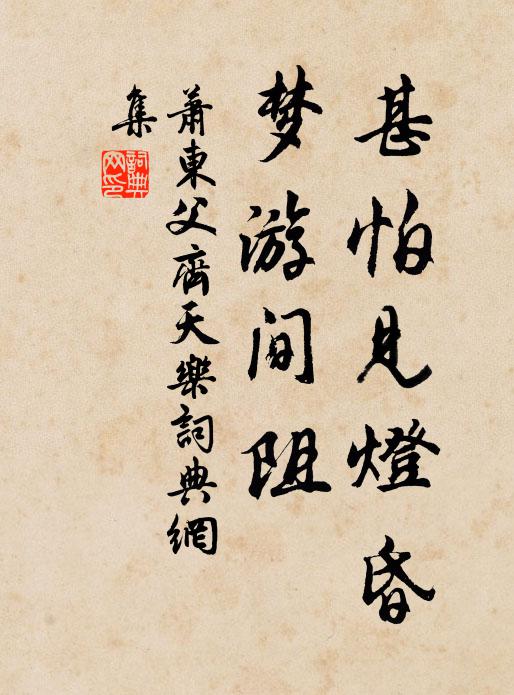 甚怕見燈昏
梦游间阻
萧東父齊天樂詞典網
集
詞典網印